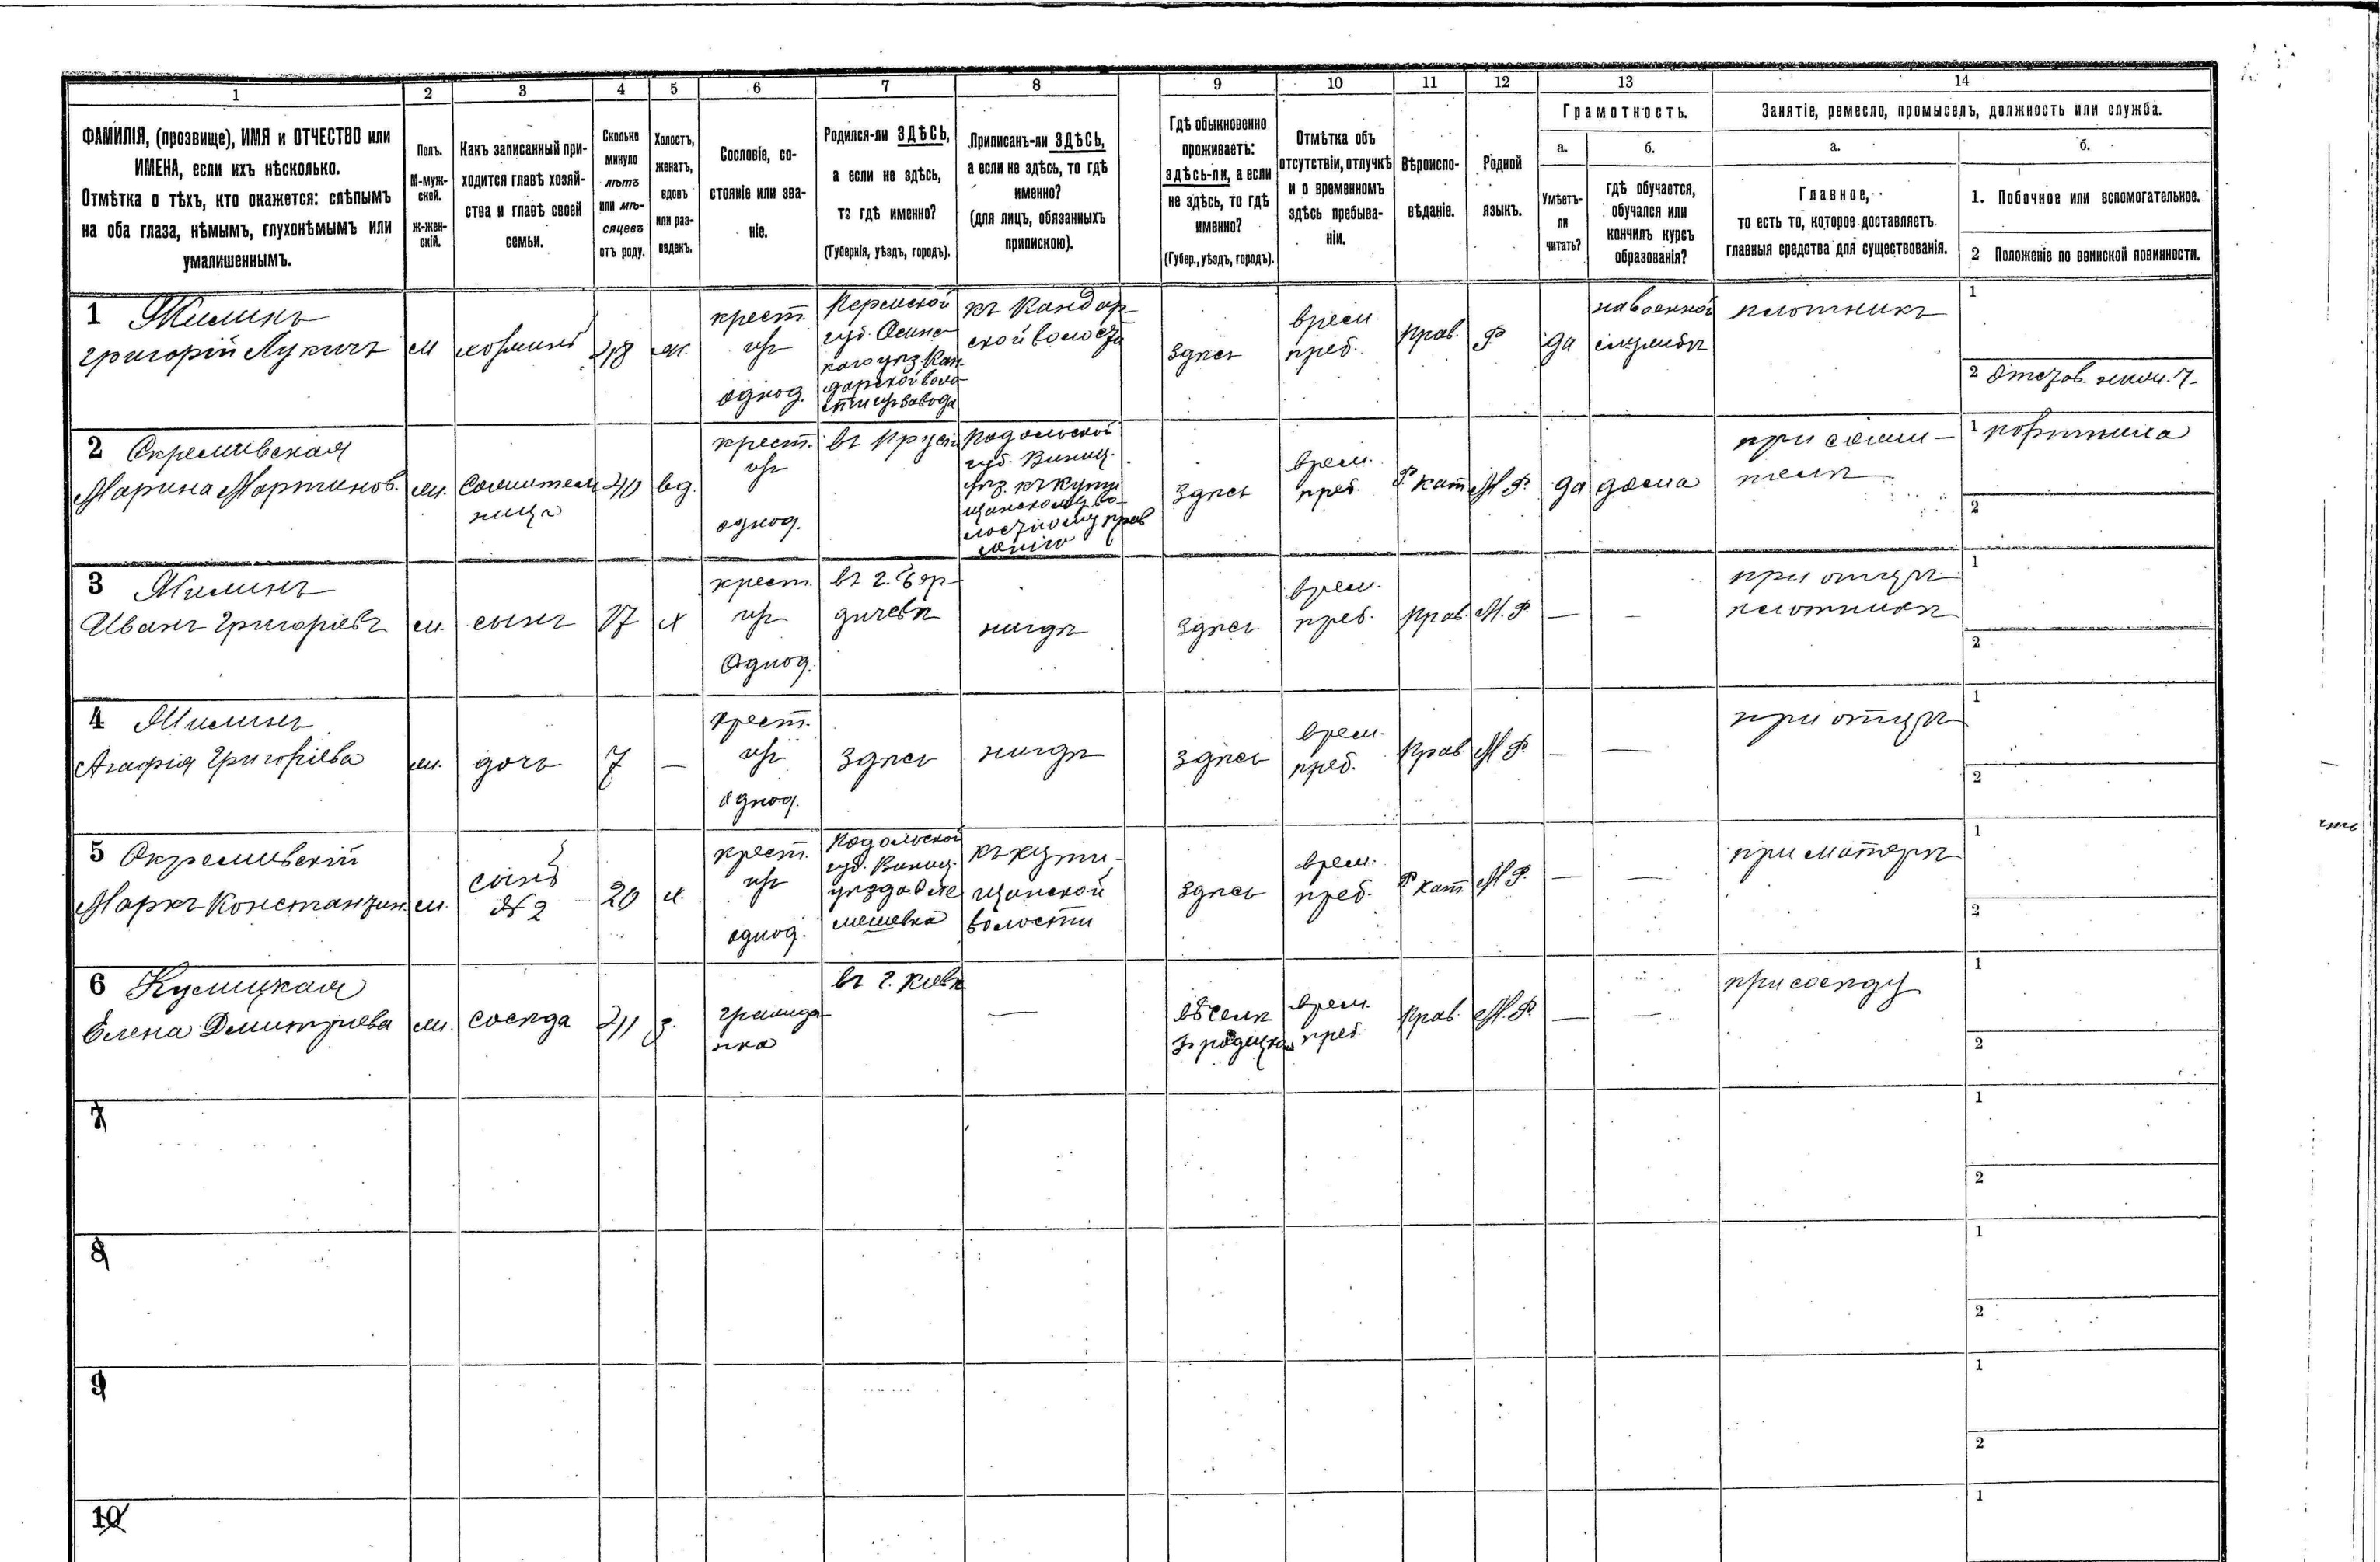 1 2 3 4 5 6 7 8 9 10 11 12 13 14
ФАМИЛІЯ, (прозвище), ИМЯ и ОТЧЕСТВО или
ИМЕНА, если ихъ нѣсколько.
Отмѣтка о тѣхъ, кто окажется: слѣпымъ
на оба глаза, нѣмымъ, глухонѣмымъ или
умалишеннымъ.
Полъ.
М-муж-
ской.
ж-жен-
скій.
Какъ записанный при-
ходится главѣ хозяй-
ства и главѣ своей
семьи.
Сколько
минуло
лѣтъ
или мѣ-
сяцевъ
отъ роду.
Холостъ,
женатъ,
вдовъ
или раз-
веденъ.
Сословіе, со-
стояніе или зва-
ніе.
Родился-ли ЗДѢСЬ,
а если не здѣсь,
то гдѣ именно?
(Губернія, уѣздъ, городъ).
Приписанъ-ли ЗДѢСЬ,
а если не здѣсь, то гдѣ
именно?
(для лицъ, обязанныхъ
припискою).
Гдѣ обыкновенно
проживаетъ:
здѣсь-ли, а если
не здѣсь, то гдѣ
именно?
(Губер., уѣздъ, городъ).
Отмѣтка объ
отсутствіи, отлучкѣ
и о временномъ
здѣсь пребыва-
ніи.
Вѣроиспо-
вѣданіе.
Родной
языкъ.
Грамотность.
а.
Умѣетъ-
ли
читать?
б.
гдѣ обучается,
обучался или
кончилъ курсъ
образованія?
Занятіе, ремесло, промыселъ, должность или служба.
а.
Главное,
то есть то, которое доставляетъ
главныя средства для существованія.
б.
1. Побочное или вспомогательное.
2 Положеніе по воинской повинности.
1 Жилинъ
Григорій Лукичъ
м
хозяинъ
48
ж.
крест.
изъ
однод.
Пермской
губ. Осинс
каго уѣз. Кан
дарской воло-
сти
завода
къ Кандар-
ской волости
здѣсь
врем.
преб.
Прав.
Р
да
на военной
службѣ
плотникъ
1
2
2 Скремивская
Марина Мартинов.
ж.
Сожитель
ница
40
вд.
крест.
изъ
однод.
въ
Подольской
губ. Винниц.
уѣз.
волостному прав
ленію
здѣсь
врем.
преб.
Р кат
М Р.
да
дома
при сожи-
телѣ
1
2
3 Жилинъ
Иванъ Григоріевъ
м.
сынъ
17
х
крест.
изъ
Однод.
въ г. Бер-
дичевѣ
нигдѣ
здѣсь
врем.
преб.
Прав.
М. Р.
—
—
при отцѣ
плотникъ
1
2
4 Жилинъ
Агафія Григоріева
ж.
дочь
7
—
крест.
изъ
однод.
Здѣсь
нигдѣ
здѣсь
врем.
преб.
Прав.
М Р.
—
—
при отцѣ
1
2
5 Скремивскій
Маркъ Константин.
м.
сынъ
№ 2
20
х.
крест.
изъ
однод.
Подольской
губ. Винниц.
уѣзда
волости
здѣсь
врем.
преб.
Р кат.
М Р.
—
—
при матерѣ
1
2
6 Кулицкая
Елена Дмитріева
ж.
сосѣда
41
з.
гражда
нка
въ г. Кіевѣ
—
въ селѣ
врем.
преб.
Прав.
М. Р.
—
—
при сосѣду
1
2
7
1
2
8
1
2
9
1
2
10
1